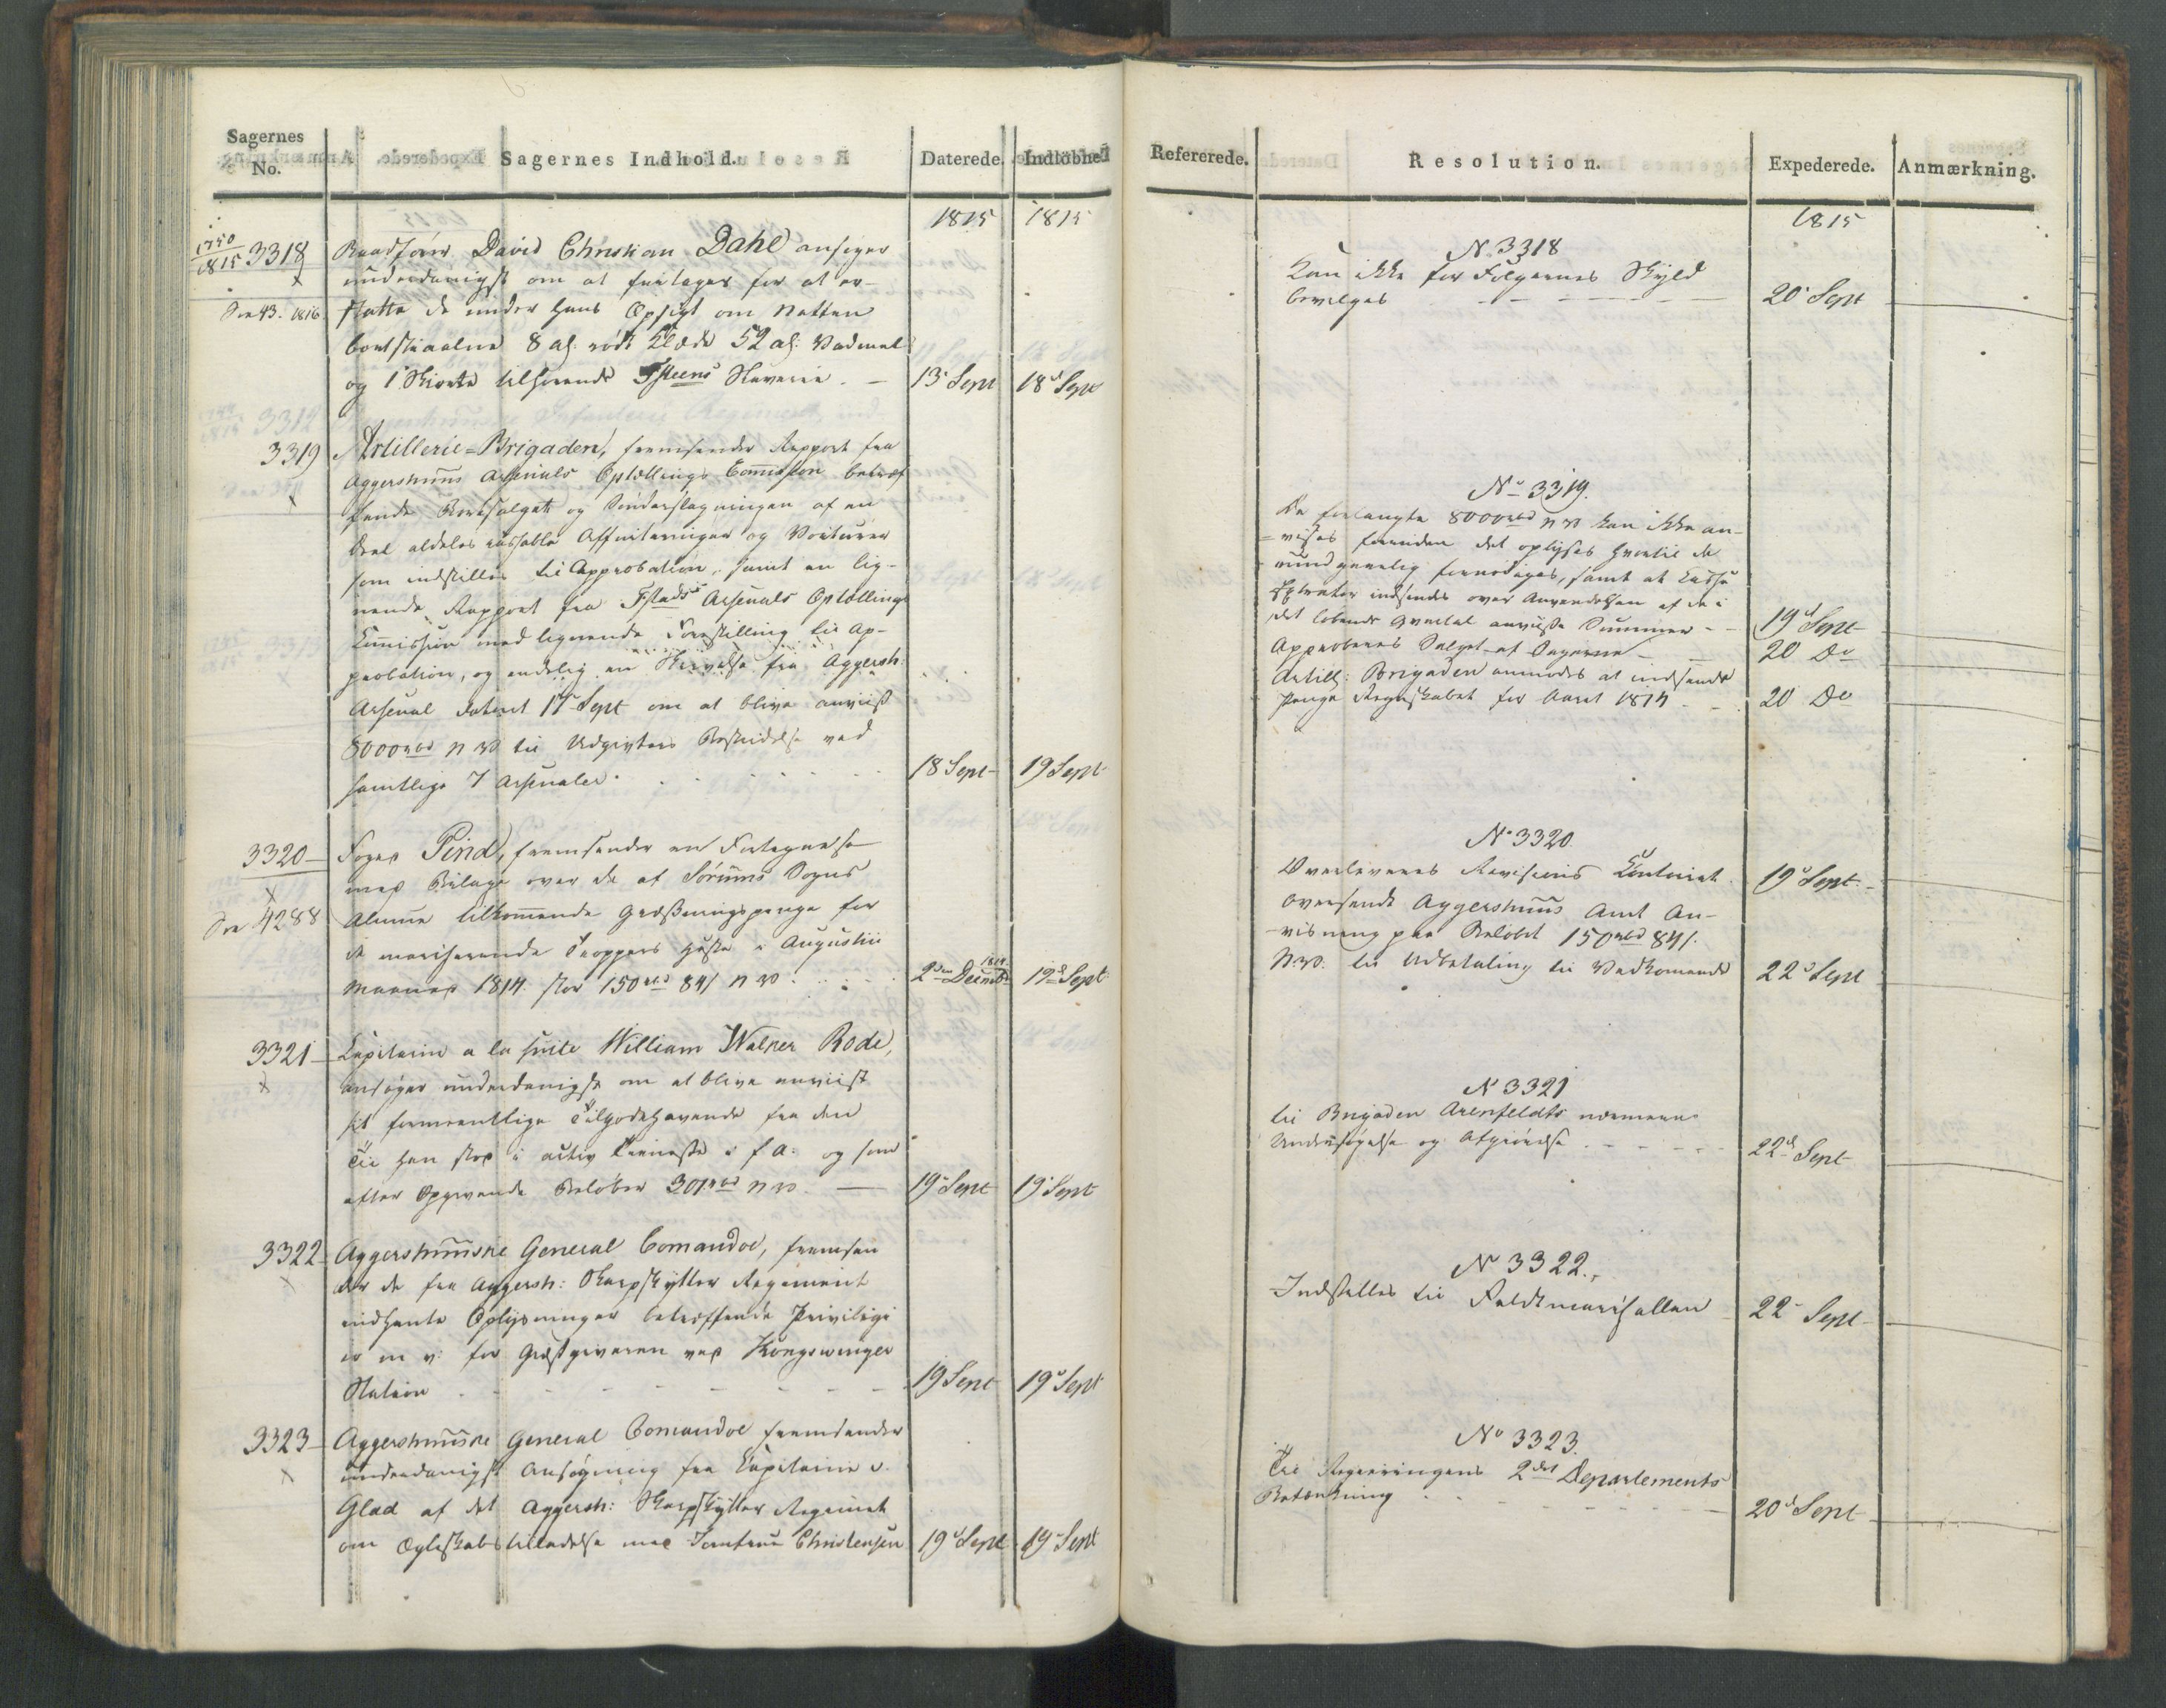 Sagernes
No.
Sagernes Indhold.
Daterede.
Indløbne
1815
1815
1750
1815
3318
Raadfører David Christian Dahl ansøger
underdanigst om at fritages for at er-
statte de under hans Opsigt om Natten
bortstiaalne 8 al: rødt Klæde 52 al: Vadmel
og 1 Skiorte tilhørende Fsteens Slaverie. —
13 Sept
18d Sept
See 43. 1816.
3319
Artillerie=Brigaden, fremsender Rapport fra
Aggershuus Arsenals Optællings Comission betræf
fende Bortsalget og Sønderslagningen af en
Deel aldeles cassable Affuiteringer og Voiturer
som indstilles til Approbation, samt en lig-
nende Rapport fra Fstads Arsenals Optællings
Comission med lignende Forestilling til Ap-
probation, og endelig en Skrivelse fra Aggersh:
Arsenal dateret 17 Sept om at blive anviist
8000 rbd N.V. til Udgivters Bestridelse ved
samtlige 7 Arsenaler.
18 Sept
19 Sept
3320
Foged Pind, fremsender en Fortegnelse
med Bilage over de af Sørums Sogns
Almue tilkommende Græsningspenge for
de marcherende Troppers Heste i Augustii
Maaned 1814. stor 150 rbd 84 s N.V.
2den Decembr 1814.
19d Sept
See 4288
3321
Capitain a la suite William Walker Rode,
ansøger underdanigst om at blive anviist
sit formeentlige Tilgodehavende fra den
Tid han stod i activ Tieneste i f. A: og som
efter Opgivende beløber 301 rbd N.V. —
19 Sept
19 Sept
3322
Aggershuuske General Comandoe, fremsen
der de fra Aggersh: Skarpskytter Regiment
indhente Oplysninger betræffende Privilegi
er m v: for Giestgiveren ved Kongswinger
Station
19 Sept
19d Sept
3323
Aggershuuske General Comandoe fremsender
underdanigst Ansøgning fra Capitaine v.
Glad af det Aggersh: Skarpskytter Regiment
om Ægteskabs tilladelse med Jomfrue Christensen
19d Sept
19 Sept
Refererede.
Resolution.
Expederede.
Anmærkning.
1815
N. 3318
Kan ikke for Følgernes Skyld
bevilges
20 Sept
No 3319.
De forlangte 8000 rbd N.V. kan ikke an-
=vises forinden det oplyses hvortil de
uundgaaelig fornødiges, samt at Casse
Extracter indsendes over Anvendelsen af de i
det løbende Qvartal anviiste Summer
19d Sept
Approberes Salget af Sagerne
20 Do
Artill: Brigaden anmodes at indsende
Penge Regnskabet for Aaret 1814
20 Do
No 3320.
Overleveres Revisions Contoiret.
19d Sept
Oversendt Aggershuus Amt An-
-visning paa Beløbet 150 rbd 84 s.
N.V. til Udbetaling til Vedkomende
22d Sept
No 3321
til Brigaden Arenfeldts nærmere
Undersøgelse og Afgiørelse
22d Sept
No 3322.
Indstilles til Feldtmarschallen
22 Sept
No 3323.
Til Regieringens 2det Departements
Betænkning
20d Sept